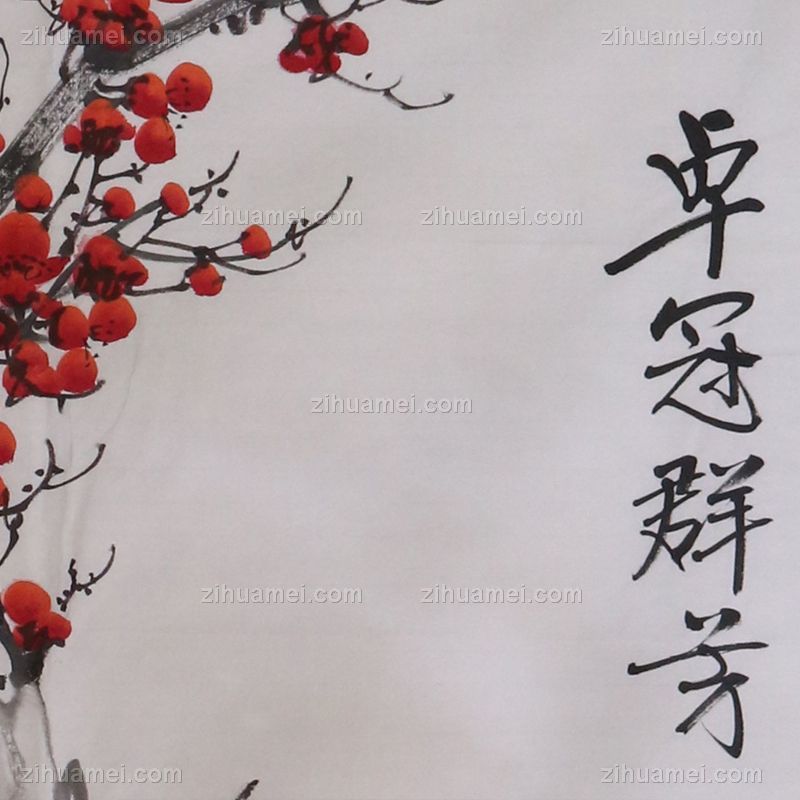 zihuamei.com zihuamei.com
zihuamei.com zihuamei.com
zihuamei.com
zihuamei.com zihuamei.com
zihuamei.com zihuamei.com
卓冠群芳